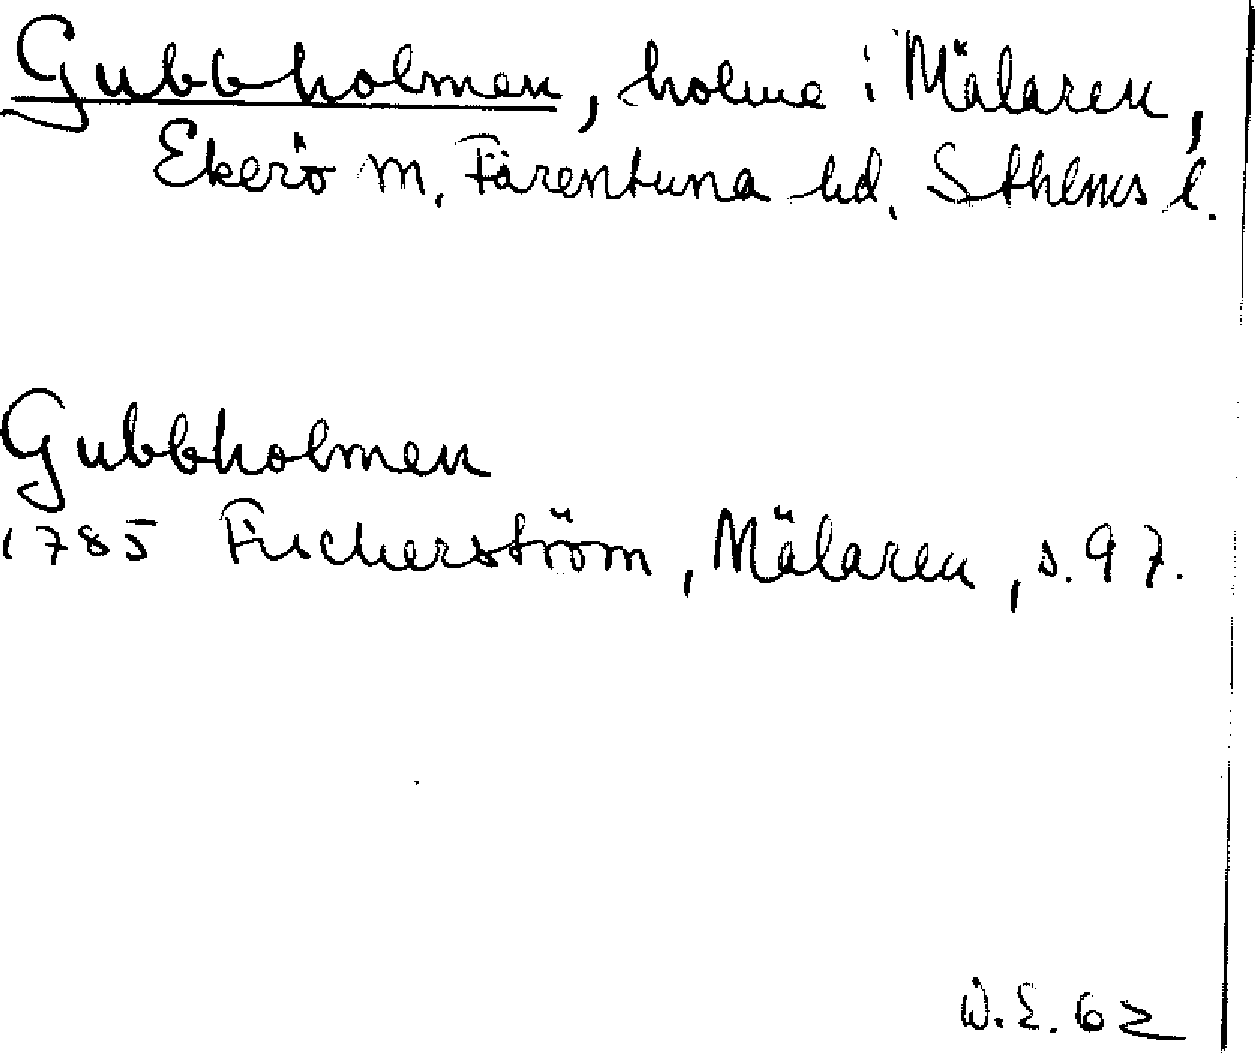 Gubbholmen, holme i Mälaren,
Ekerö sn. Färentuna hd. Sthlms l.
Gubbholmen
1785 Fischerström, Mälaren, s. 97.
W.E. 62